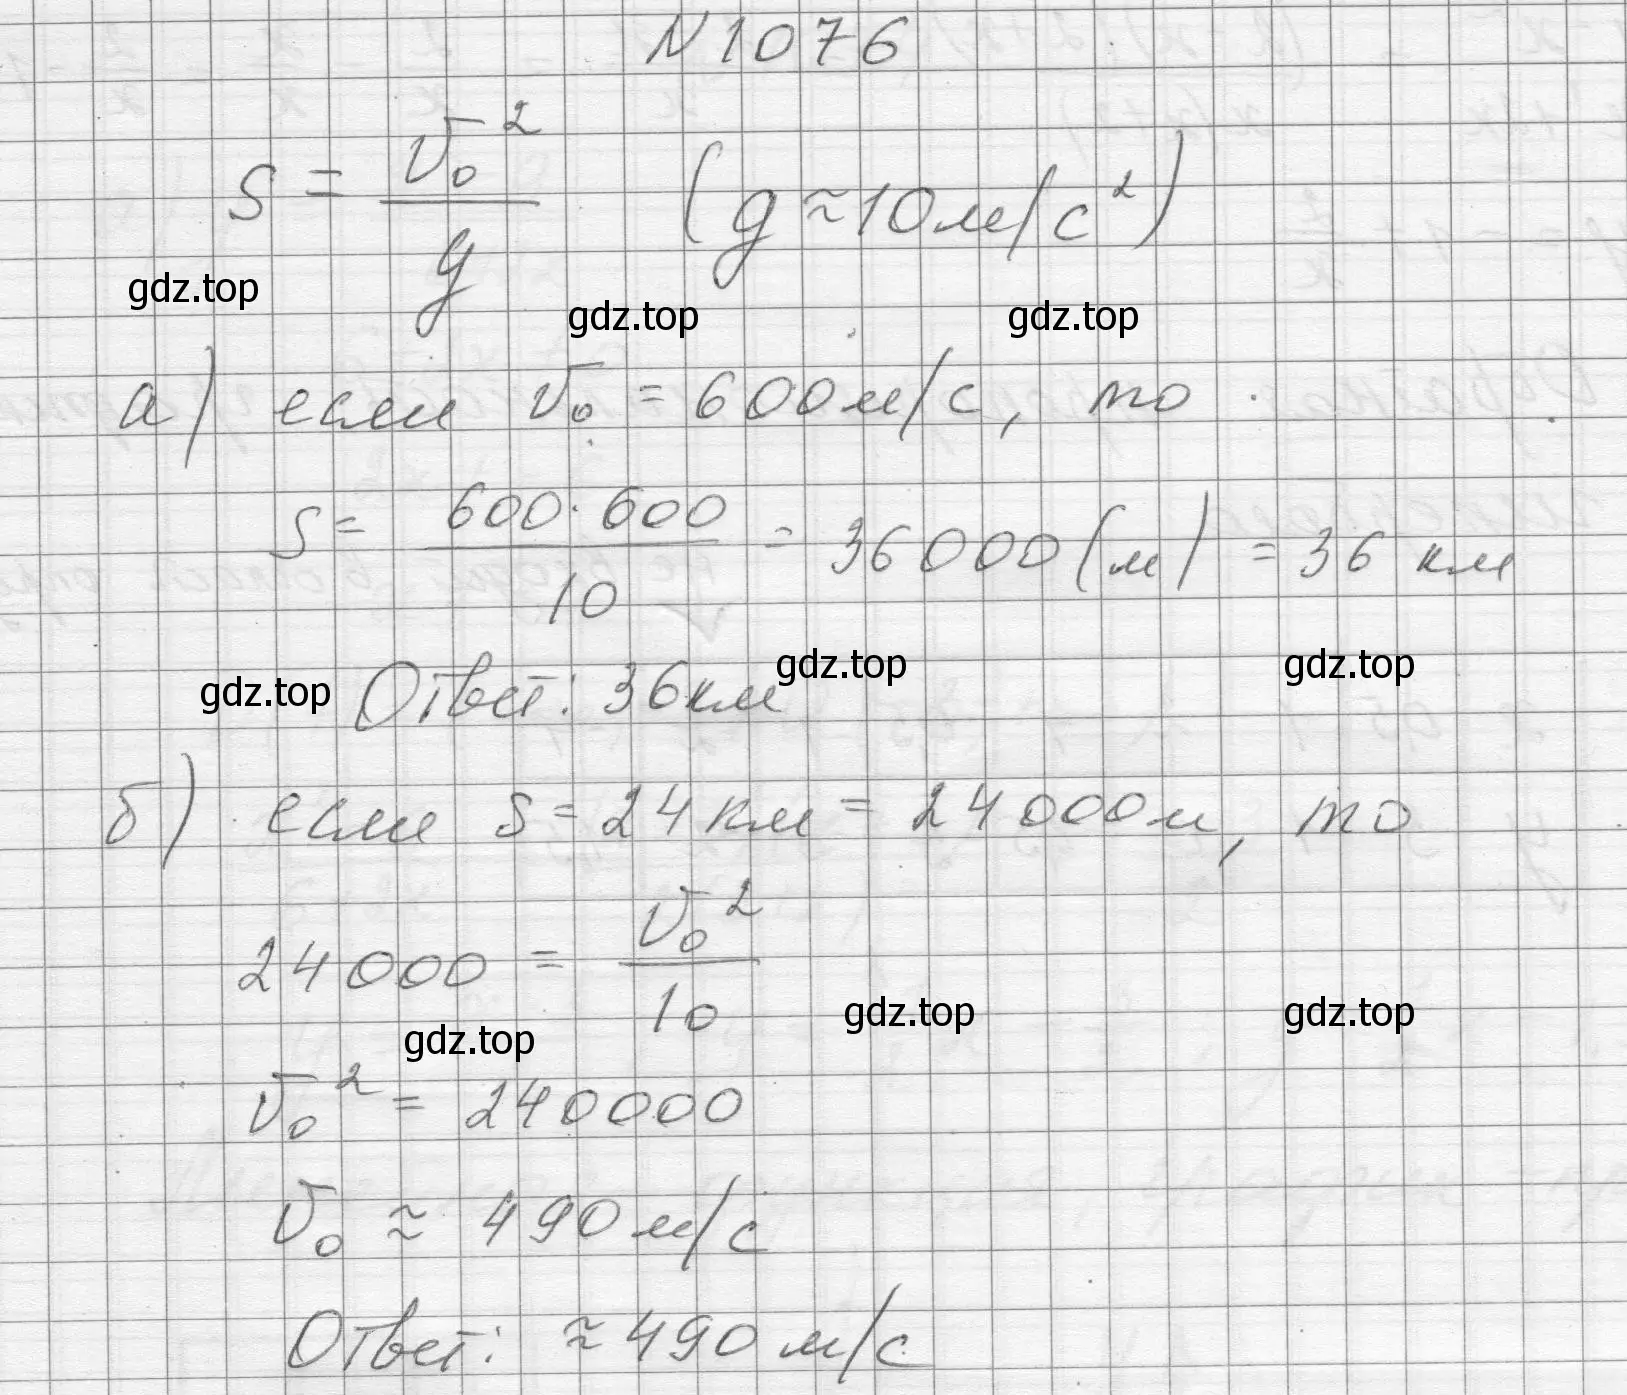 N 1076
s = v₀² / g (g ≈ 10 м/с²)
gdz.top gdz.top gdz.top
а) если v₀ = 600 м/с, то
s = 600 · 600 / 10 = 36000 (м) = 36 км
gdz.top gdz.top gdz.top
Ответ: 36 км
б) если s = 24 км = 24000 м, то
24000 = v₀² / 10
gdz.top gdz.top gdz.top
v₀² = 240000
v₀ ≈ 490 м/с
Ответ: ≈ 490 м/с